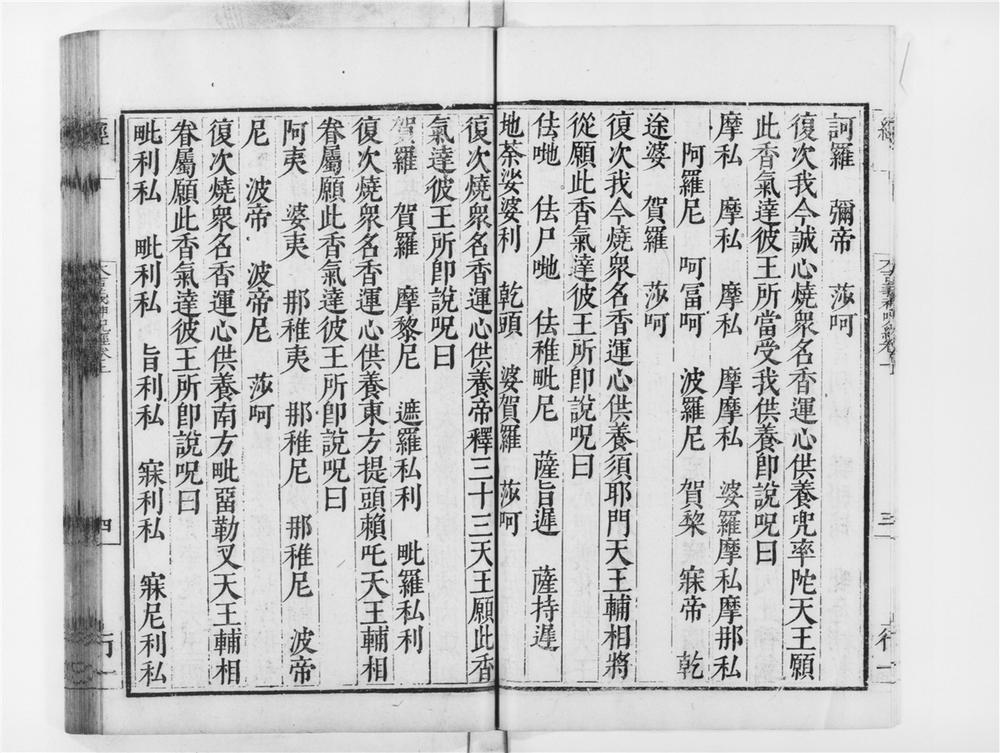 訶羅　彌帝　莎呵
復次我今誠心燒衆名香運心供養兜率陀天王願
此香氣達彼王所當受我供養卽說呪曰
摩私　摩私　摩私　摩摩私　婆羅摩私摩那私
阿羅尼　呵冨呵　波羅尼　賀棃　寐帝　乾
途婆　賀羅　莎呵
復次我今燒衆名香運心供養須耶門天王輔相將
從願此香氣達彼王所卽說呪曰
佉吔　佉尸吔　佉稚毗尼　薩旨遲　薩持遲
地荼娑婆利　乾頭　婆賀羅　莎呵
復次燒衆名香運心供養帝釋三十三天王願此香
氣達彼王所卽說呪曰
賀羅　賀羅　摩黎尼　遮羅私利　毗羅私利
復次燒衆名香運心供養東方提頭賴吒天王輔相
眷屬願此香氣達彼王所卽說呪曰
阿夷　婆夷　那稚夷　那稚尼　那稚尼　波帝
尼　波帝　波帝尼　莎呵
復次燒衆名香運心供養南方毗畱勒叉天王輔相
眷屬願此香氣達彼王所卽說呪曰
毗利私　毗利私　旨利私　寐利私　寐尼利私
經
三
行一
經
四
行一